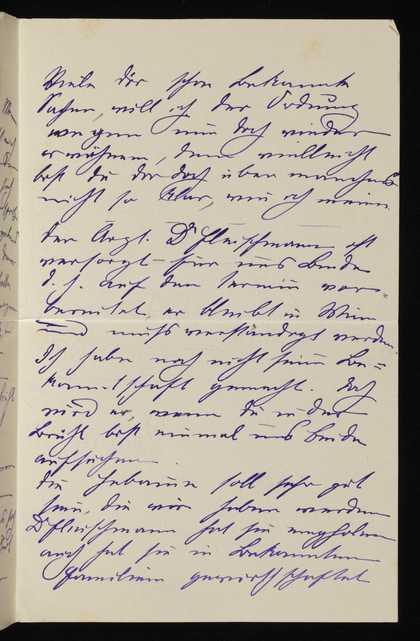 Viele dir schon bekannte
Sachen, will ich der Ordnung
wegen nun doch wieder
erwähnen, denn vielleicht
bist du dir doch über manches
nicht so klar, wie ich meine.
Der Arzt. Dr Fleischmann ist
versorgt für uns beide
d. h. auf den Termin vor-
bereitet, er bleibt in Wien
und muss verständigt werden.
Ich habe noch nicht seine Be-
kanntschaft gemacht. Doch
wird er, wenn du in der
Brühl bist einmal uns beide
aufsuchen.
Die Hebamme soll sehr gut
sein, die wir haben werden
Dr Fleischmann hat sie empfohlen
auch hat sie in bekannten
Familien gewirtschaftet